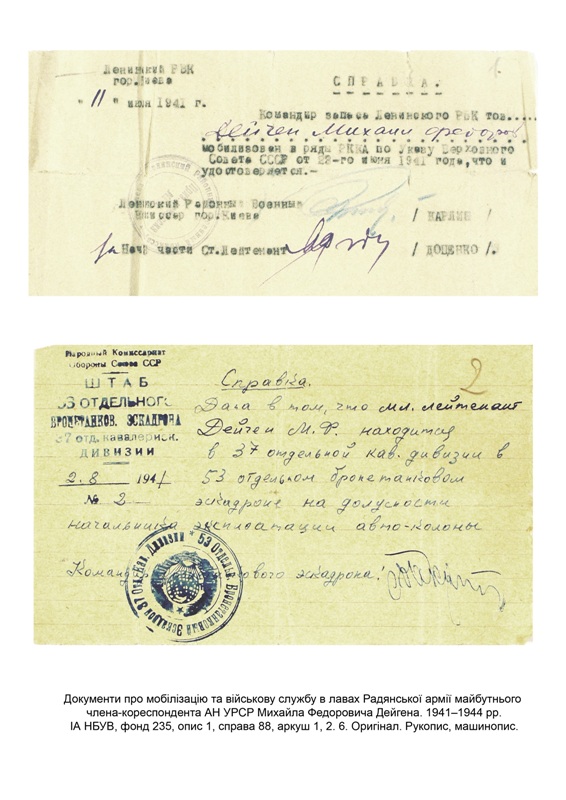 Ленинский РВК
гор.Киева
1.
СПРАВКА.
"11" июля 1941 г.
Командир запаса Ленинского РВК тов.....
Дейген Михаил Федоров
мобилизован в ряды РККА по Указу Верховного
Совета СССР от 22-го июня 1941 года, что и
удостоверяется.-
Ленинский Районный Военный
Комиссар гор.Киева / КАРЛИН /
За Нач. части Ст.Лейтенант / ДОЦЕНКО /.
Народный Комиссариат
Обороны Союза ССР
ШТАБ
53 ОТДЕЛЬНОГО
БРОНЕТАНКОВ. ЭСКАДРОНА
37 отд. кавалерийск.
ДИВИЗИИ
2.8 1941
№ 2
2
Справка.
Дана в том, что мл. лейтенант
Дейген М.Ф. находится
в 37 отдельной кав. дивизии в
53 отдельном бронетанковом
эскадроне на должности
начальника эксплоатации авто-колоны
Команд тового эскадрона:
53 Отдельн. Бронетанковый Эскадрон 37 Отд. Кав. Дивизии
Документи про мобілізацію та військову службу в лавах Радянської армії майбутнього
члена-кореспондента АН УРСР Михайла Федоровича Дейгена. 1941–1944 рр.
ІА НБУВ, фонд 235, опис 1, справа 88, аркуш 1, 2. 6. Оригінал. Рукопис, машинопис.